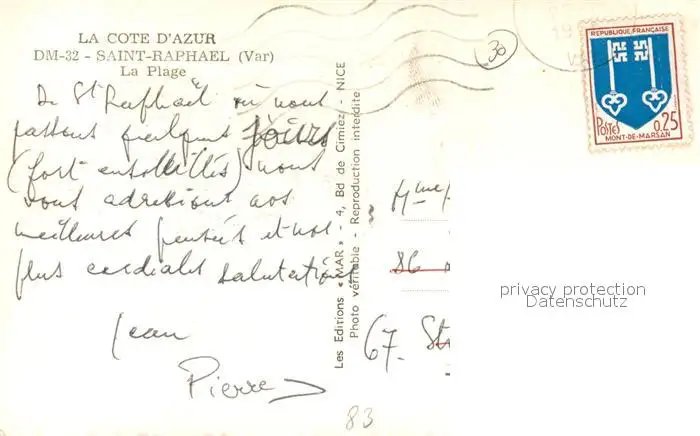 LA COTE D'AZUR
DM-32 - SAINT-RAPHAEL (Var)
La Plage
De St Raphaël où nous
passons quelques jours
(fort ensoleillés) nous
vous adressons nos
meilleures pensées et nos
plus cordiales salutations
Jean
Pierre
83
Les Editions « MAR » - 4, Bd de Cimiez - NICE
Photo véritable - Reproduction interdite
30
19
REPUBLIQUE FRANÇAISE
POSTES 0,25
MONT-DE-MARSAN
Mme
86
67. Str
privacy protection
Datenschutz